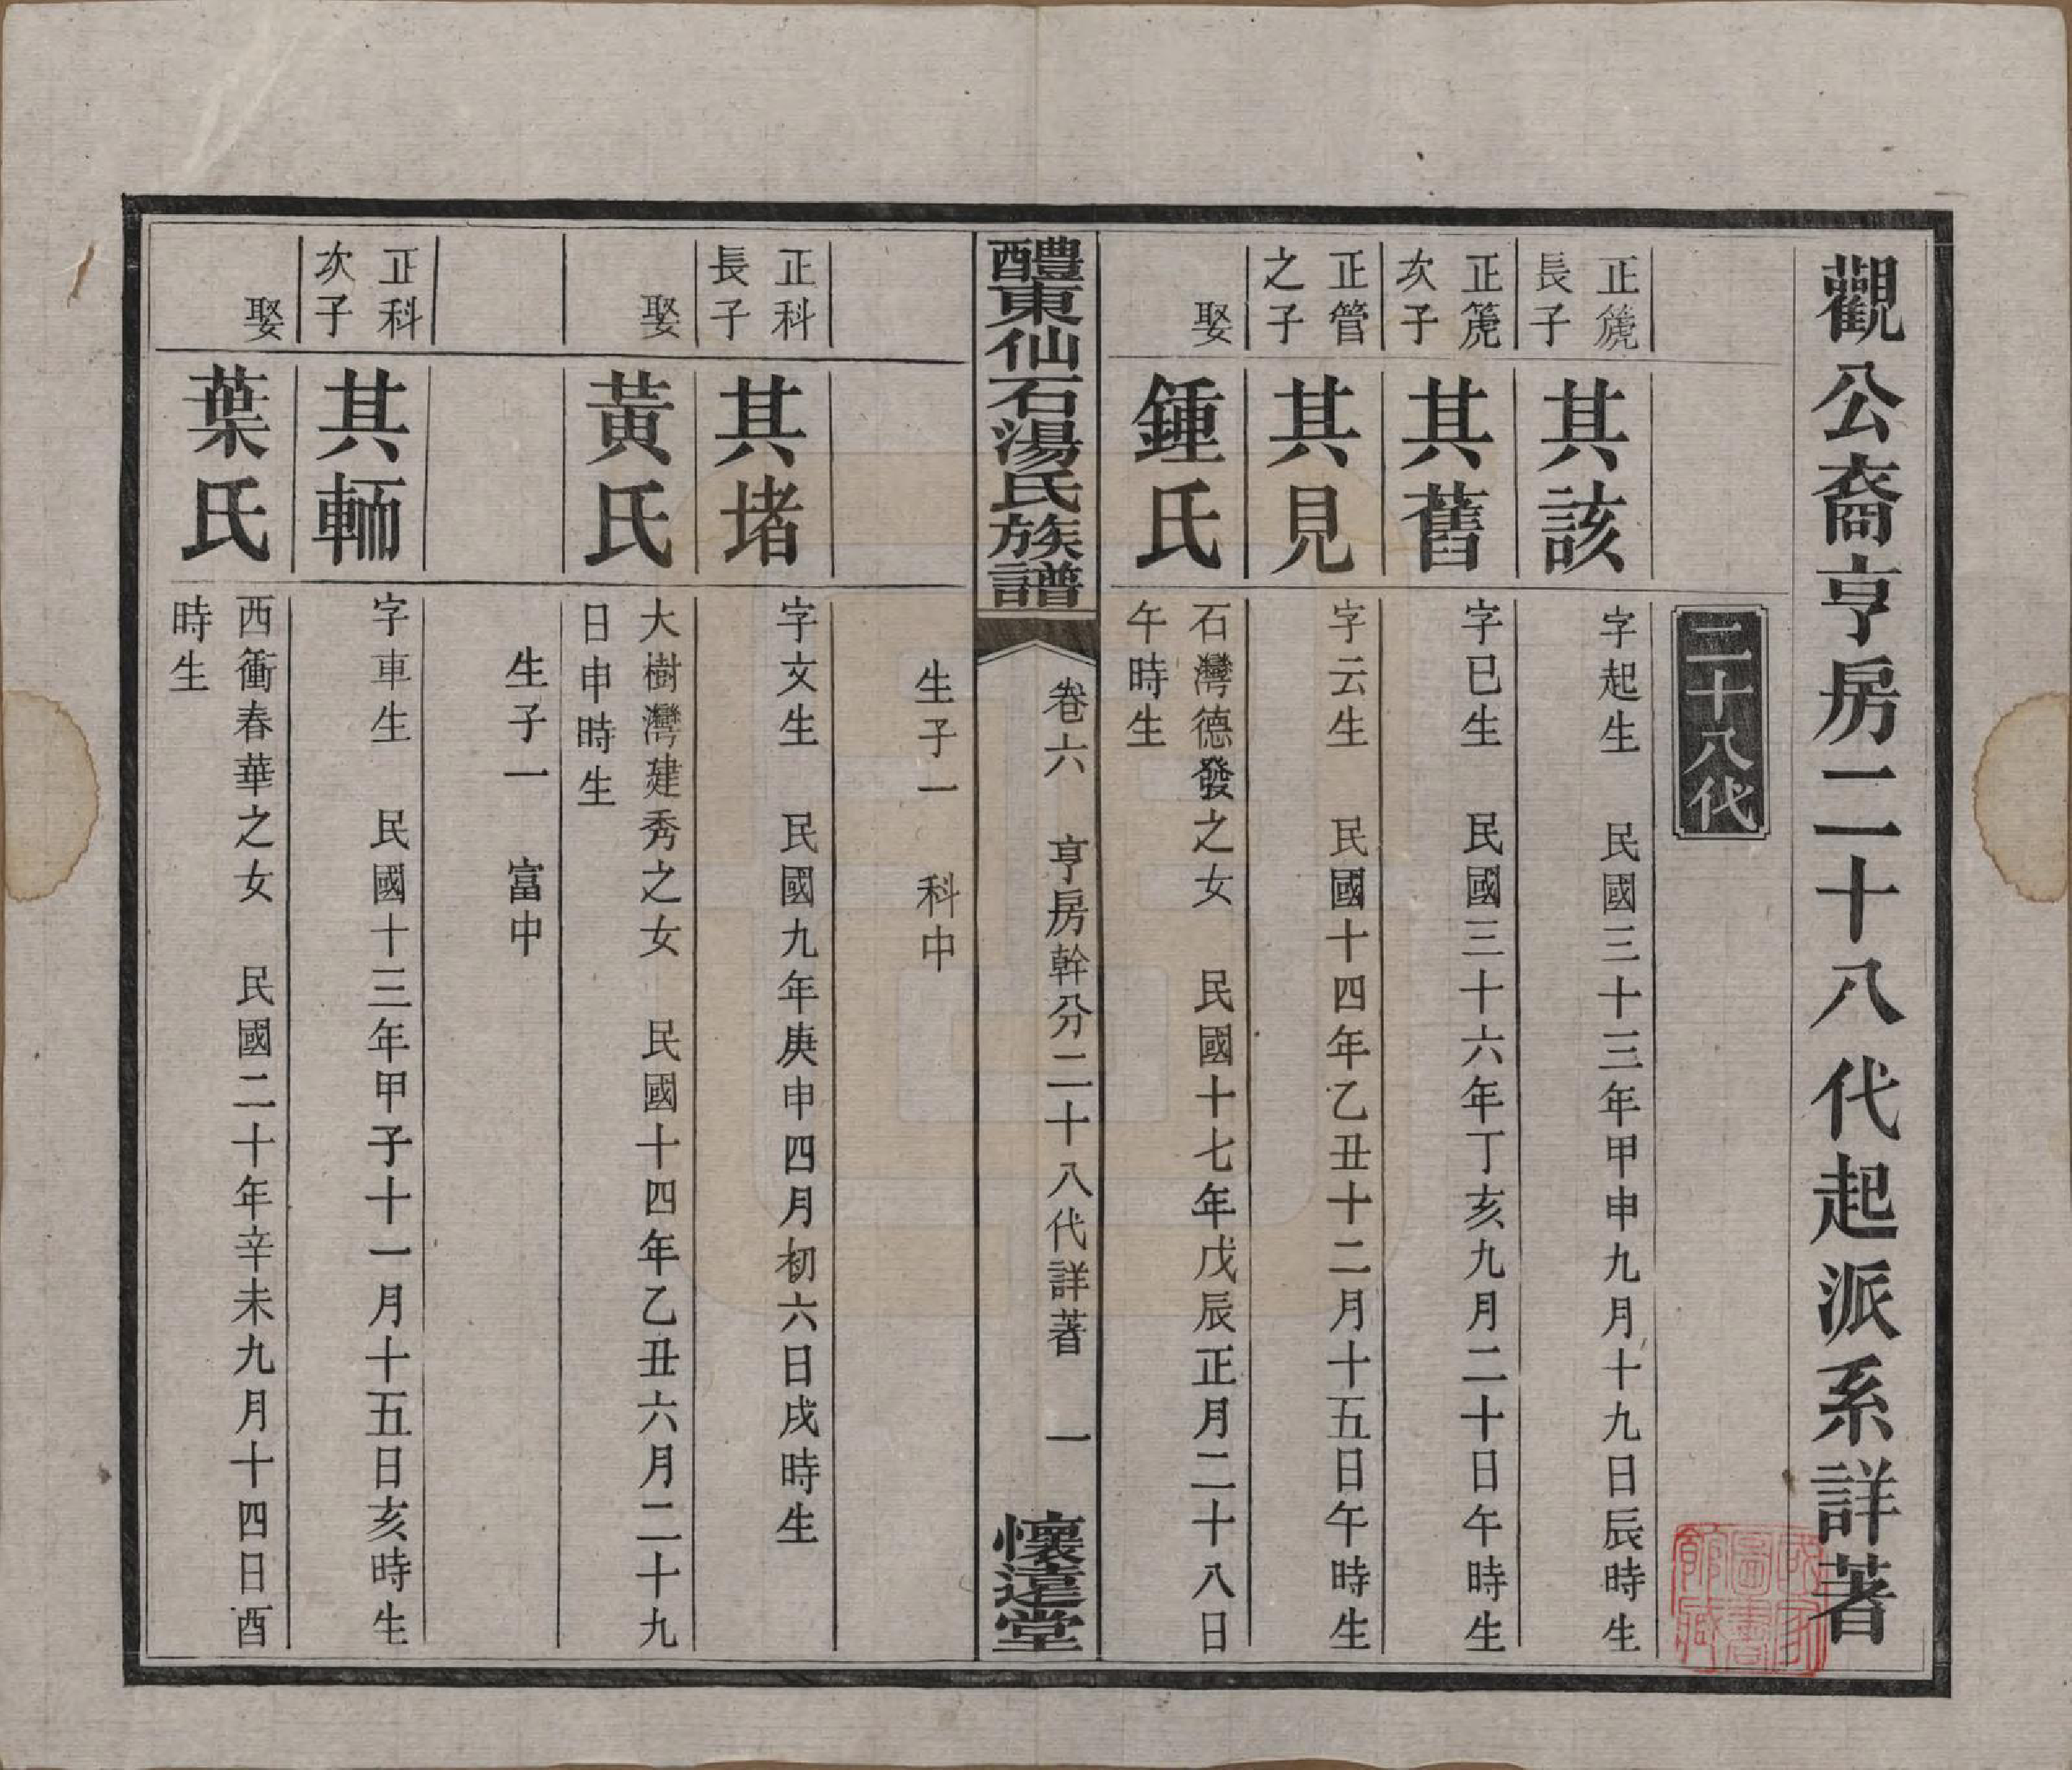 觀公裔亨房二十八代起派系詳著
二十八代
正箎長子
其該
字起生 民國三十三年甲申九月十九日辰時生
正箎次子
其舊
字已生 民國三十六年丁亥九月二十日午時生
正管之子
其見
字云生 民國十四年乙丑十二月十五日午時生
娶
鍾氏
石灣德發之女 民國十七年戊辰正月二十八日
午時生
醴東仙石湯氏族譜
卷六 亨房幹分二十八代詳著 一
懷遠堂
生子一 科中
正科長子
其堵
字文生 民國九年庚申四月初六日戌時生
娶
黃氏
大樹灣建秀之女 民國十四年乙丑六月二十九
日申時生
生子一 富中
正科次子
其輀
字車生 民國十三年甲子十一月十五日亥時生
娶
葉氏
西衝春華之女 民國二十年辛未九月十四日酉
時生
國家圖書館藏